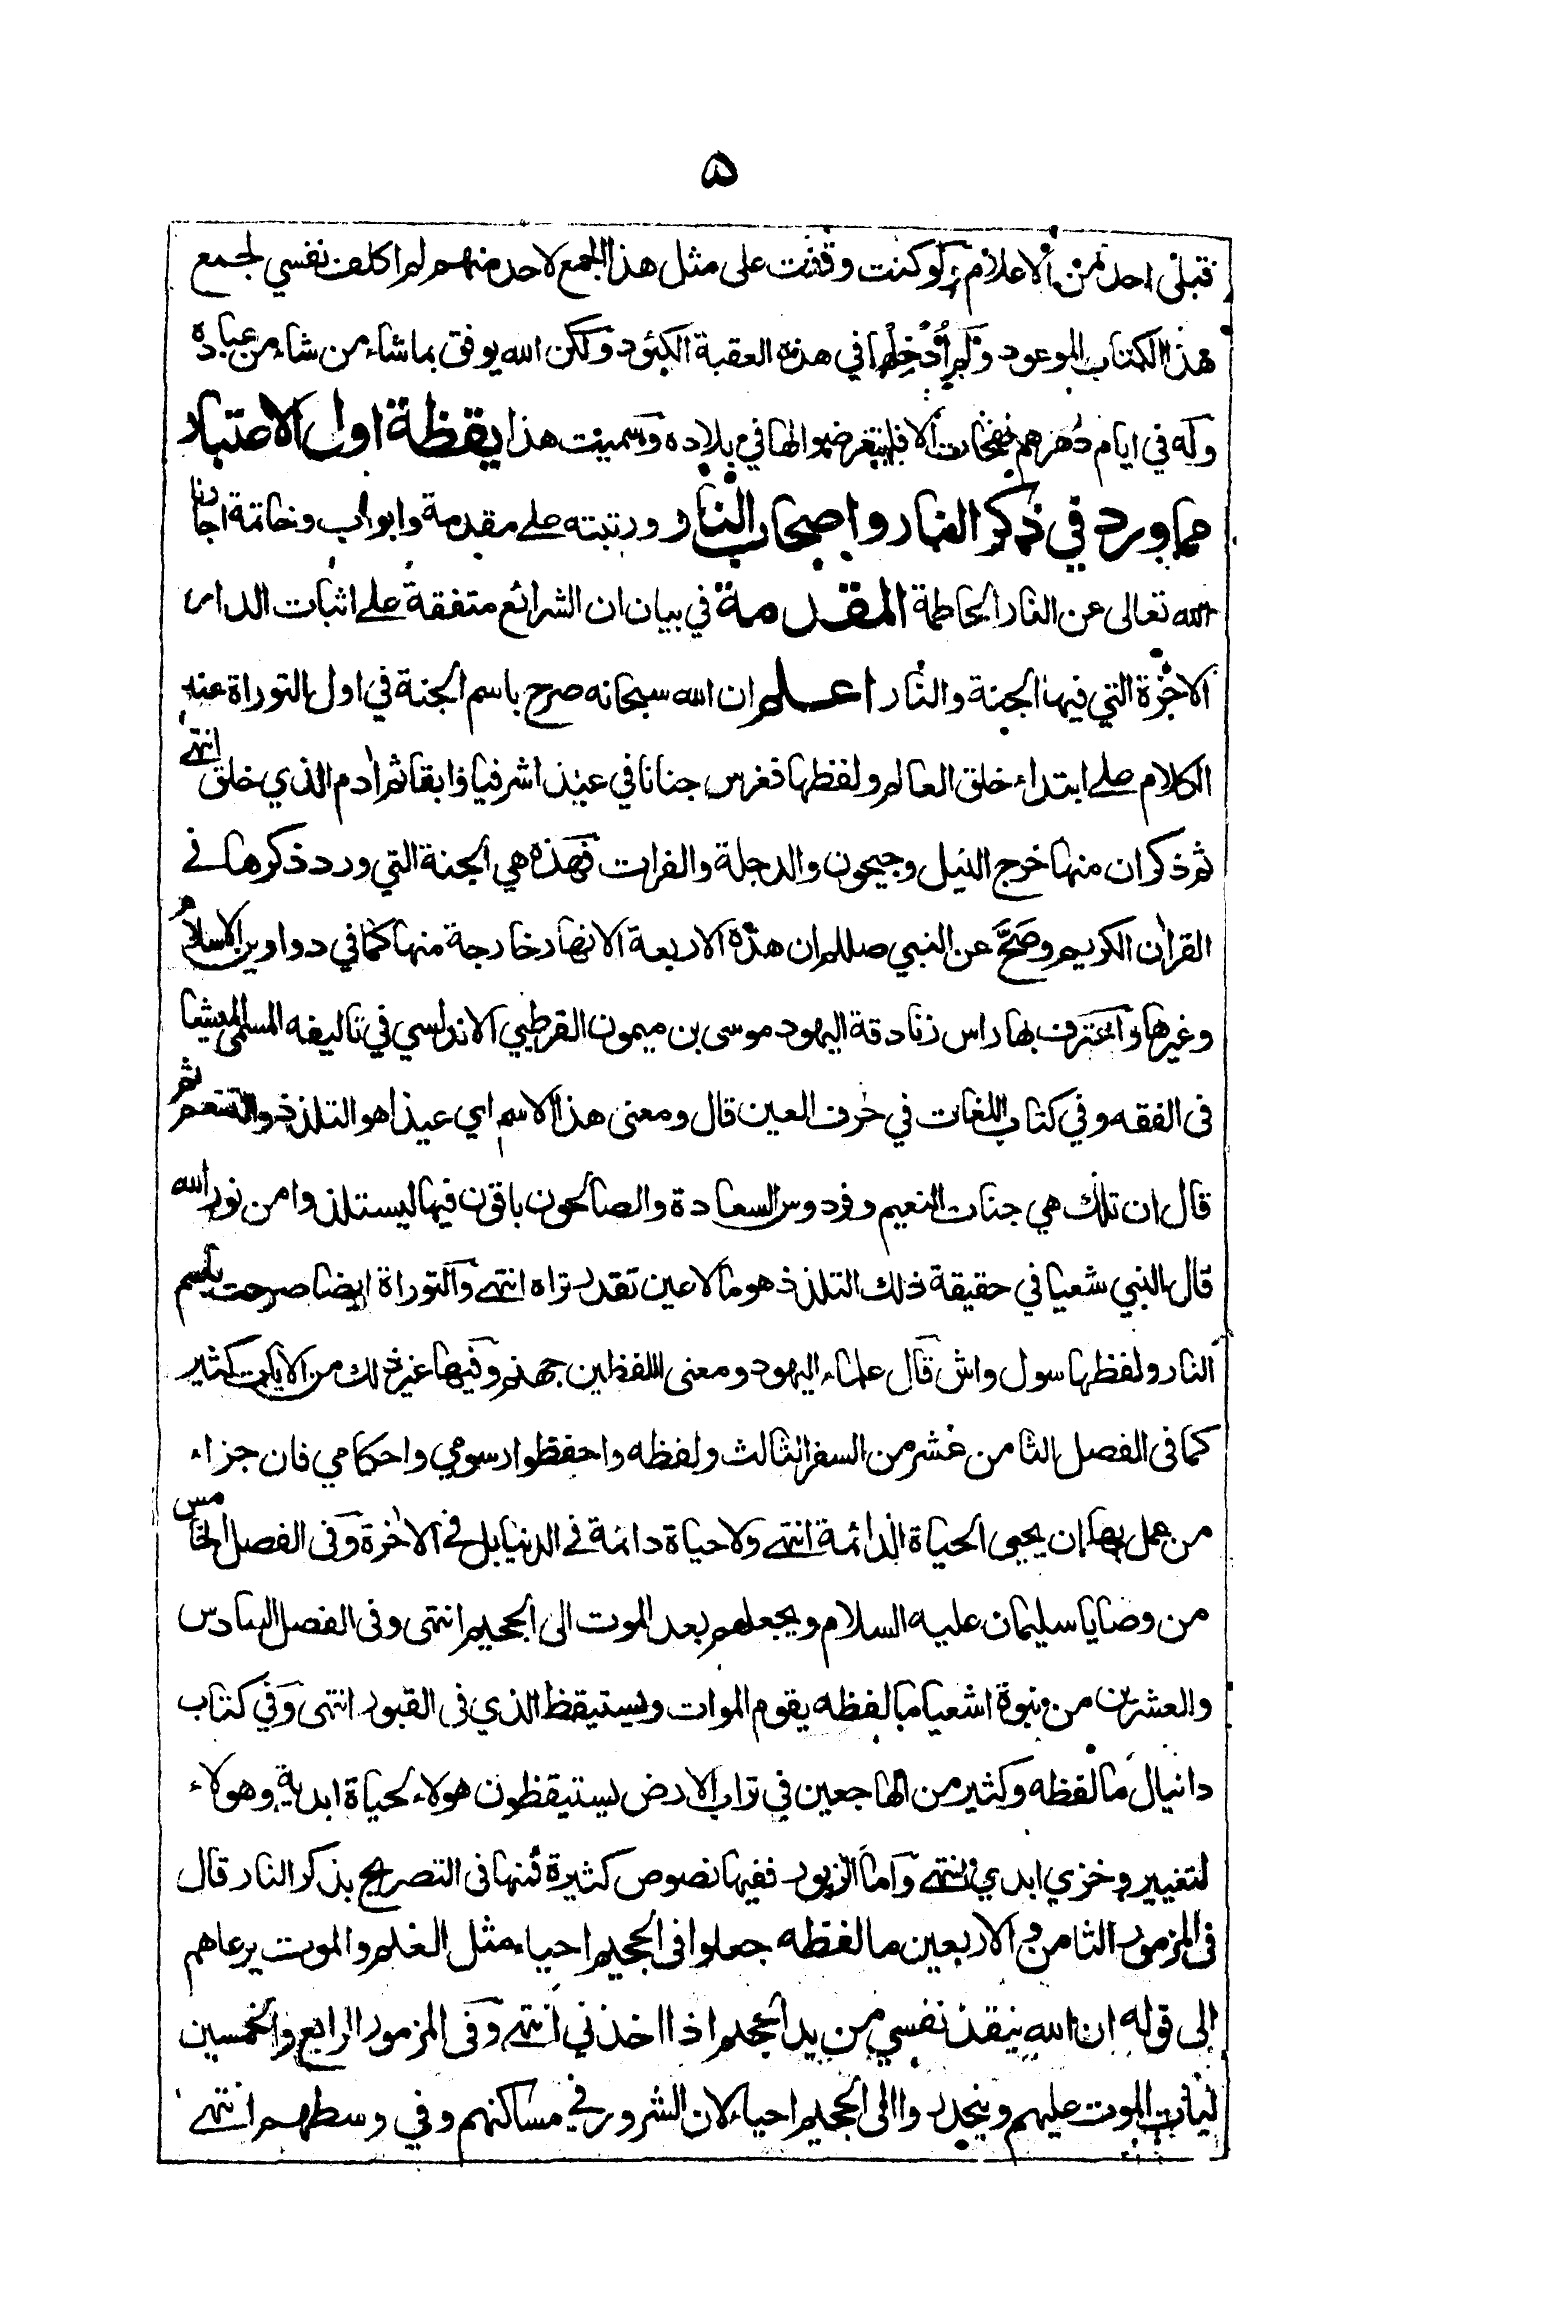 ۵
قبلى احد من الاعلام ولو كنت وقفت على مثل هذا الجمع لاحد منهم لم اكلف نفسي لجمع
هذا الكتاب الموعود ولم أُدْخِلها في هذه العقبة الكئود ولكن الله يوفق بما شاء من شاء من عباده
وله في ايام دهرهم نفحات الا فليتعرضوا لها في بلاده وسميت هذا يقظة اولى الاعتبار
مما ورد في ذكر النار واصحاب النار ورتبته على مقدمة وابواب وخاتمة اجارنا
الله تعالى عن النار الحاطمة المقدمة في بيان ان الشرائع متفقة على اثبات الدار
الاخرة التي فيها الجنة والنار اعلم ان الله سبحانه صرح باسم الجنة في اول التوراة عند
الكلام على ابتداء خلق العالم ولفظها فغرس جنانا في عيذا شرفيا وابقا ثم ادم الذي خلق انتهى
ثم ذكر ان منها خرج النيل وجيحون والدجلة والفرات فهذه هي الجنة التي ورد ذكرها في
القران الكريم وصَحَّ عن النبي صللم ان هذه الاربعة الانهار خارجة منها كما في دواوين الاسلام
وغيرها واعترف بها راس زنادقة اليهود موسى بن ميمون القرطبي الاندلسي في تاليفه المسلمى المشيا
فى الفقه وفي كتاب اللغات في حرف العين قال ومعنى هذا الاسم اي عيذا هو التلذذ والتنعم ثم
قال ان تلك هي جنات النعيم وفردوس السعادة والصالحون باقون فيها ليستلذوا من نور الله
قال النبي شعيا في حقيقة ذلك التلذذ هو ما لا عين تقدر تراه انتهى والتوراة ايضا صرحت باسم
النار ولفظها سول واش قال علماء اليهود ومعنى اللفظين جهنم وفيها غير ذلك من الايات كثير
كما فى الفصل الثامن عشر من السفر الثالث ولفظه واحفظوا رسومي واحكامي فان جزاء
من عمل بها ان يحيى الحياة الدائمة انتهى ولا حياة دائمة في الدنيا بل في الاخرة وفى الفصل الخامس
من وصايا سليمان عليه السلام ويجعلهم بعد الموت الى الجحيم انتهى وفى الفصل السادس
والعشرين من نبوة اشعيا ما لفظه يقوم الموات ويستيقظ الذي فى القبور انتهى وفي كتاب
دانيال ما لفظه وكثير من الهاجعين في تراب الارض يستيقظون هولاء لحياة ابدية وهولاء
لتغيير وخزي ابدي انتهى واما الزبور ففيها نصوص كثيرة فمنها فى التصريح بذكر النار قال
فى المزمور الثامن والاربعين ما لفظه جعلوا فى الجحيم احياء مثل الغلم والموت يرعاهم
الى قوله ان الله ينقذ نفسي من يد الجحيم اذا اخذني انتهى وفى المزمور الرابع والخمسين
ليأت الموت عليهم وينحدروا الى الجحيم احياء لان الشرور في مساكنهم وفي وسطهم انتهى